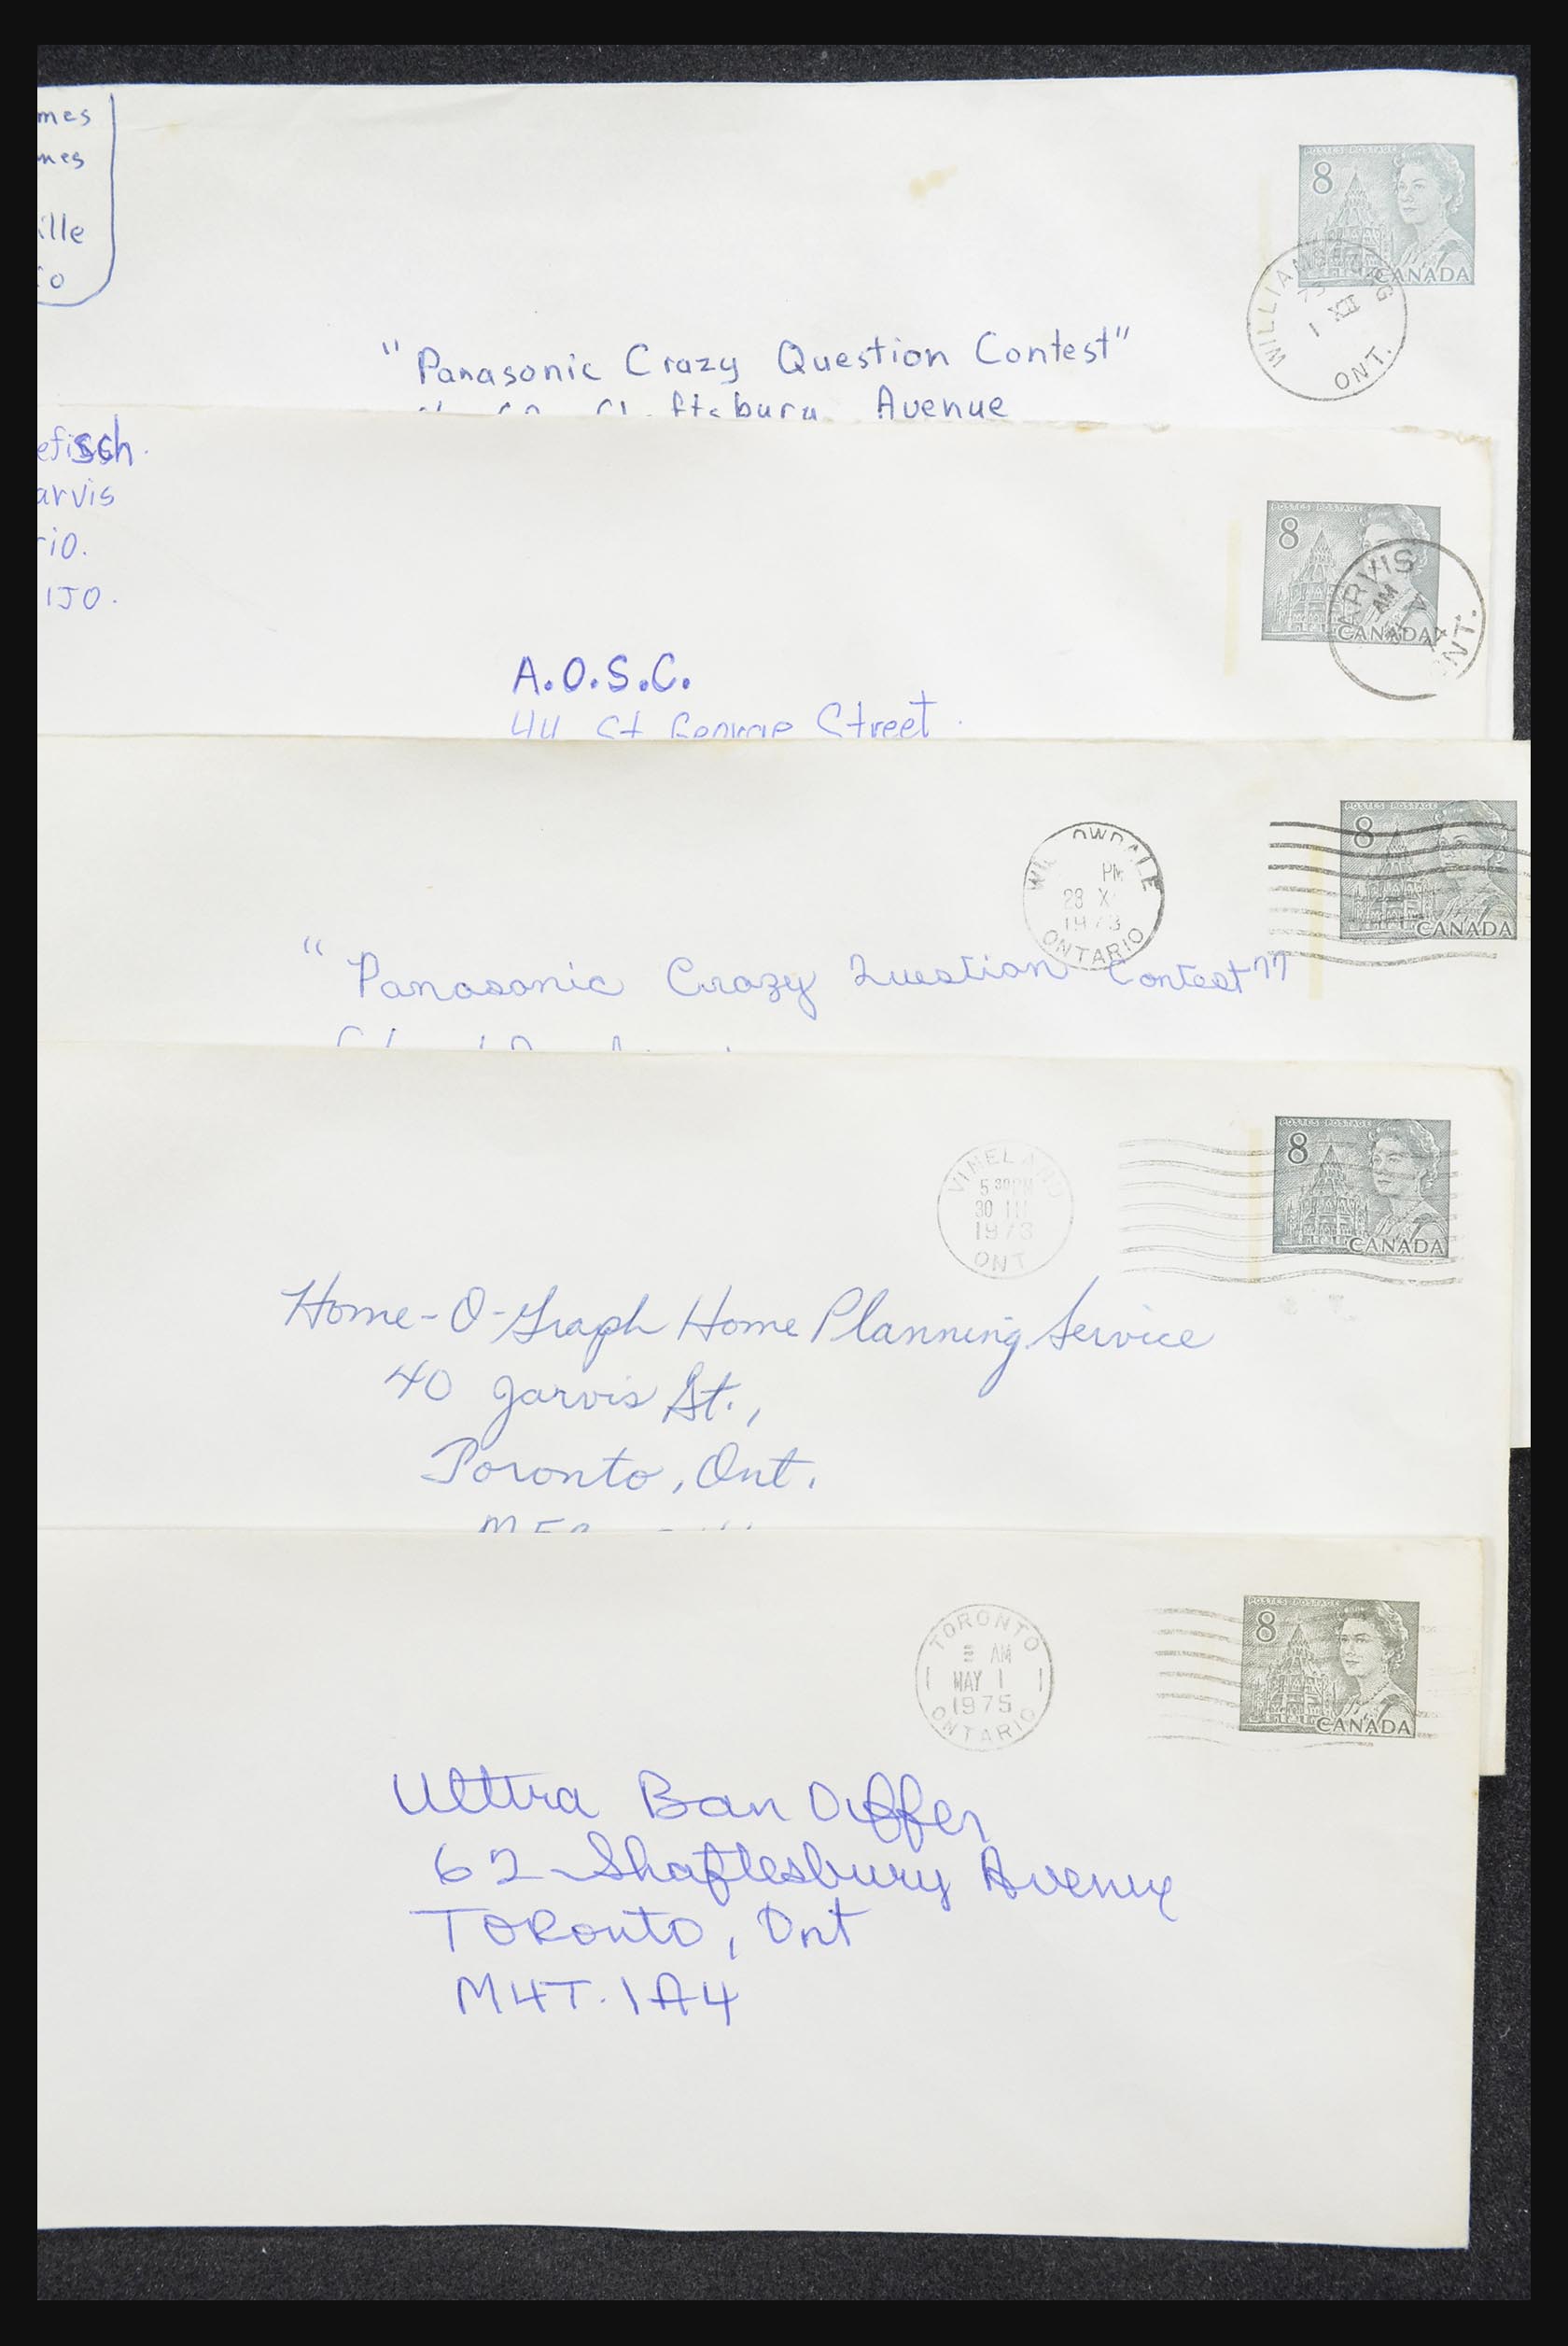 mes
mes
ille
io
POSTES POSTAGE
8
CANADA
WILLIAMSBURG
73
1 XII
ONT.
"Panasonic Crazy Question Contest"
Avenue
sch.
arvis
rio.
1J0.
POSTES POSTAGE
8
CANADA
ARVIS
AM
NT.
A.O.S.C.
44 St George Street
POSTES POSTAGE
8
CANADA
OWDALE
PM
1973
ONTARIO
"Panasonic Crazy Question Contest"
POSTES POSTAGE
8
CANADA
VINELAND
5 30 PM
30 III
1973
ONT
Home-O-Graph Home Planning Service
40 Jarvis St.,
Toronto, Ont.
POSTES POSTAGE
8
CANADA
TORONTO
AM
MAY 1
1975
ONTARIO
Ulttra Ban Differ
62 Shaftesbury Avenue
TORonto, Ont
M4T.1A4